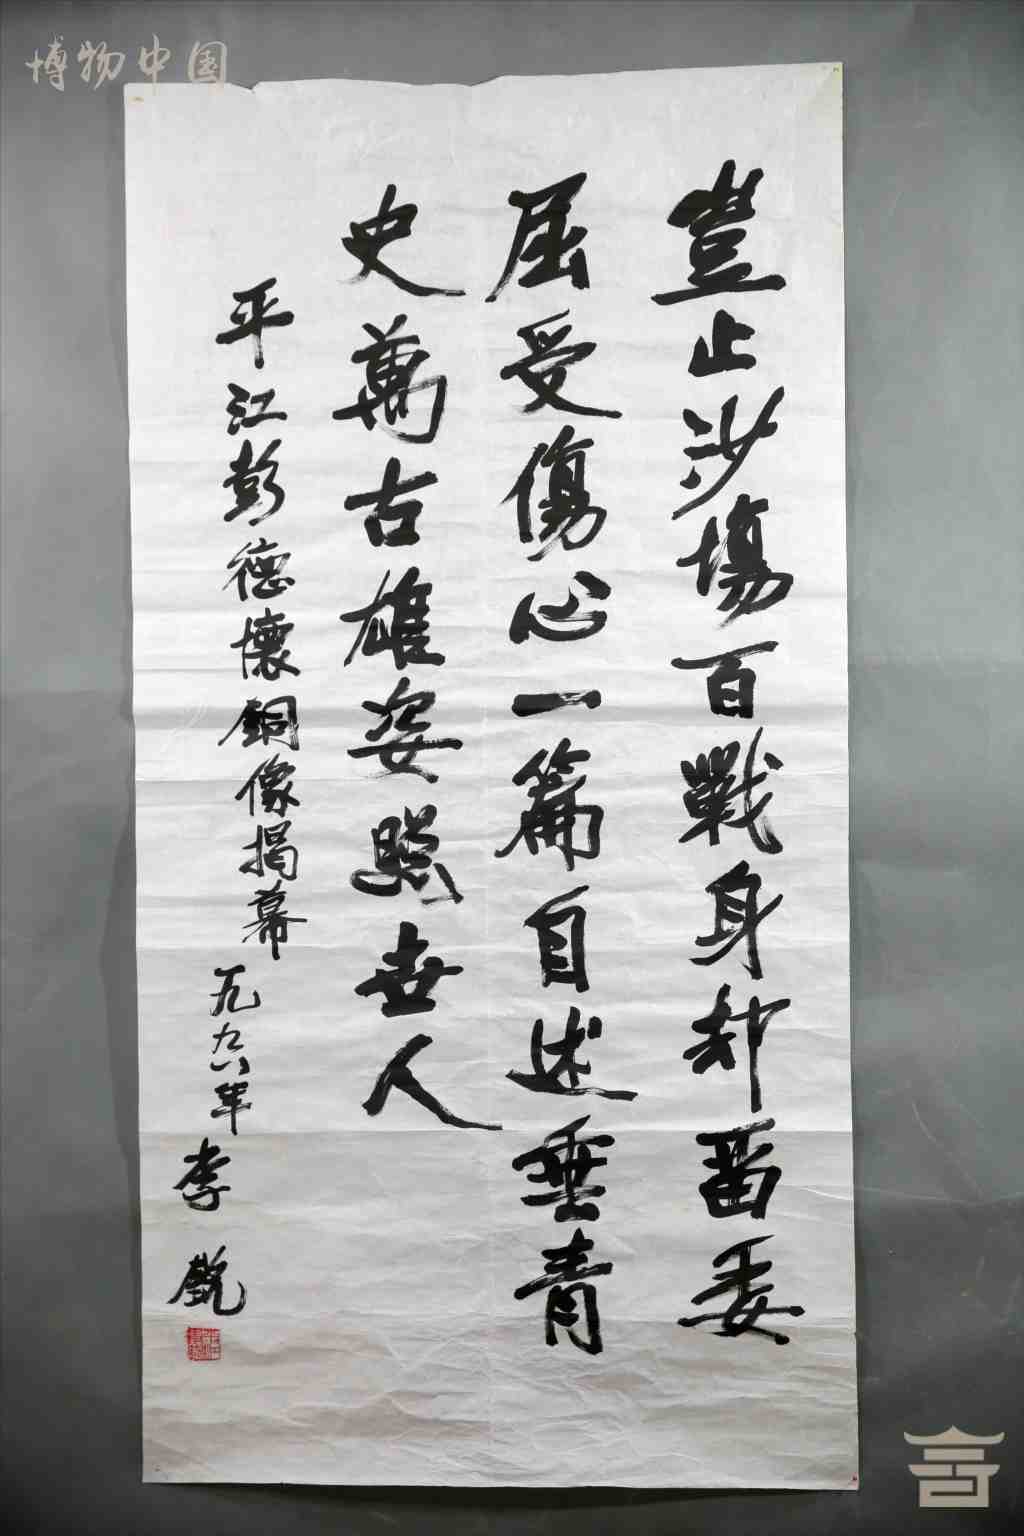 博物中国
豈止沙場百戰身却留委
屈受傷心一篇自述垂青
史萬古雄姿照世人
平江彭德懷銅像揭幕 一九九六年 李銳